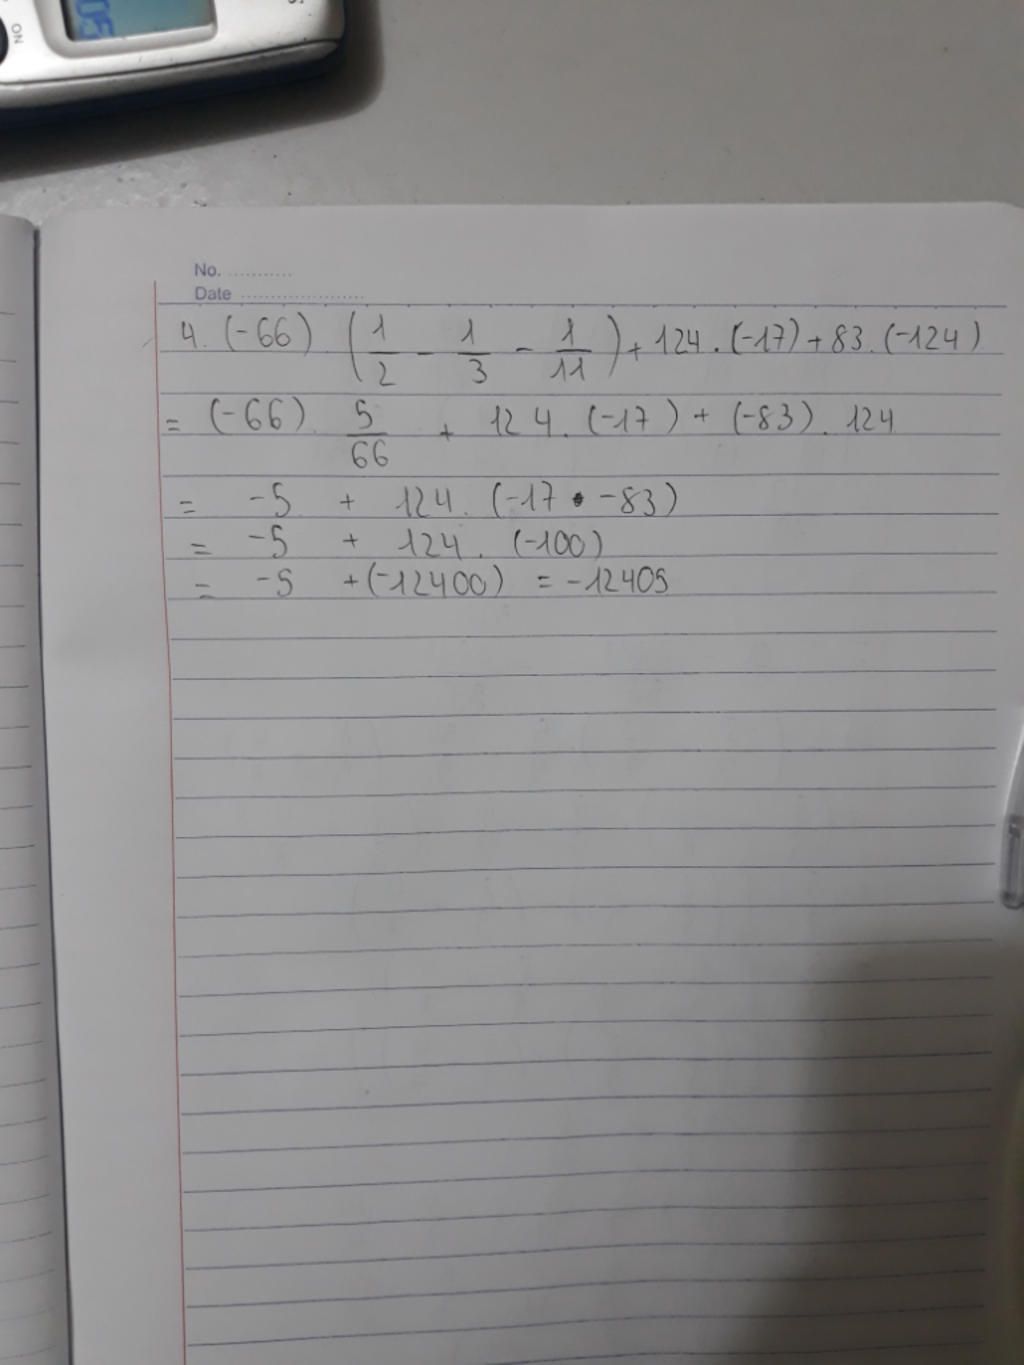 NO
No. ...........
Date ....................
4. (-66) (1/2 - 1/3 - 1/11) + 124 . (-17) + 83 . (-124)
= (-66) . 5/66 + 124 . (-17) + (-83) . 124
= -5 + 124 . (-17 • -83)
= -5 + 124 . (-100)
= -5 + (-12400) = -12405